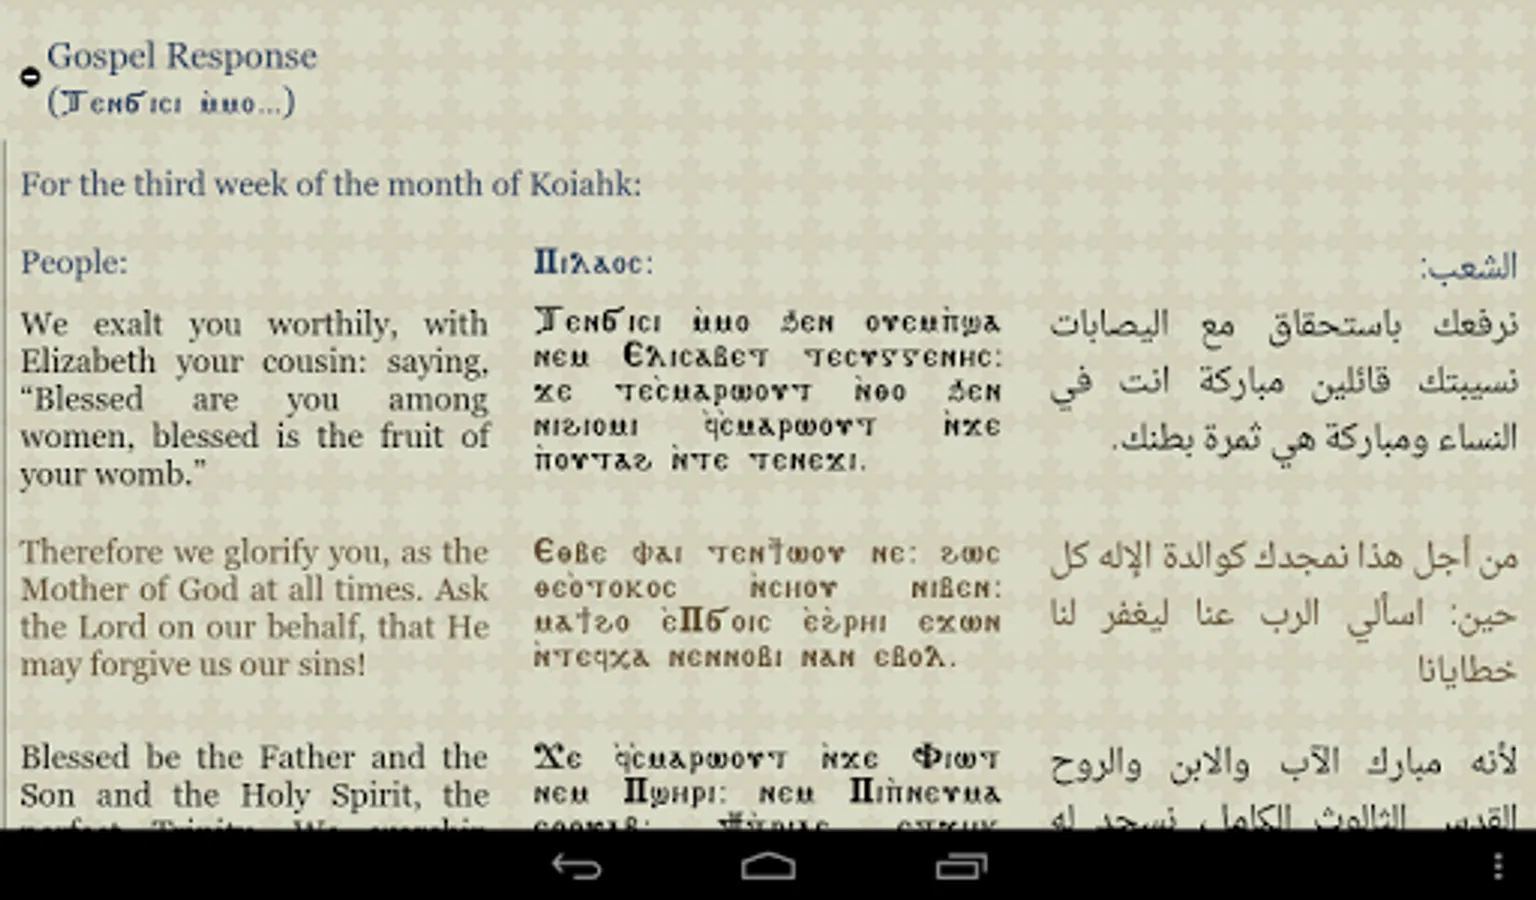 Gospel Response
(Ⲧⲉⲛϭⲓⲥⲓ ⲙ̀ⲙⲟ...)
For the third week of the month of Koiahk:
People:
We exalt you worthily, with
Elizabeth your cousin: saying,
“Blessed are you among
women, blessed is the fruit of
your womb.”
Therefore we glorify you, as the
Mother of God at all times. Ask
the Lord on our behalf, that He
may forgive us our sins!
Blessed be the Father and the
Son and the Holy Spirit, the
perfect Trinity. We worship
Ⲡⲓⲗⲁⲟⲥ:
Ⲧⲉⲛϭⲓⲥⲓ ⲙ̀ⲙⲟ ϧⲉⲛ ⲟⲩⲉⲙⲡ̀ϣⲁ
ⲛⲉⲙ Ⲉⲗⲓⲥⲁⲃⲉⲧ ⲧⲉⲥⲩⲅⲅⲉⲛⲏⲥ:
ϫⲉ ⲧⲉⲥ̀ⲙⲁⲣⲱⲟⲩⲧ ⲛ̀ⲑⲟ ϧⲉⲛ
ⲛⲓϩⲓⲟⲙⲓ ϥ̀ⲥⲙⲁⲣⲱⲟⲩⲧ ⲛ̀ϫⲉ
ⲡ̀ⲟⲩⲧⲁϩ ⲛ̀ⲧⲉ ⲧⲉⲛⲉϫⲓ.
Ⲉⲑⲃⲉ ⲫⲁⲓ ⲧⲉⲛϯⲱⲟⲩ ⲛⲉ: ϩⲱⲥ
ⲑⲉⲟ̀ⲧⲟⲕⲟⲥ ⲛ̀ⲥⲏⲟⲩ ⲛⲓⲃⲉⲛ:
ⲙⲁϯϩⲟ ⲉ̀Ⲡϭⲟⲓⲥ ⲉ̀ϩ̀ⲣⲏⲓ ⲉϫⲱⲛ
ⲛ̀ⲧⲉϥⲭⲁ ⲛⲉⲛⲛⲟⲃⲓ ⲛⲁⲛ ⲉⲃⲟⲗ.
Ϫⲉ ϥ̀ⲥⲙⲁⲣⲱⲟⲩⲧ ⲛ̀ϫⲉ Ⲫⲓⲱⲧ
ⲛⲉⲙ Ⲡϣⲏⲣⲓ: ⲛⲉⲙ Ⲡⲓⲡ̀ⲛⲉⲩⲙⲁ
الشعب:
نرفعك باستحقاق مع اليصابات
نسيبتك قائلين مباركة انت في
النساء ومباركة هي ثمرة بطنك.
من أجل هذا نمجدك كوالدة الإله كل
حين: اسألي الرب عنا ليغفر لنا
خطايانا
لأنه مبارك الآب والابن والروح
القدس الثالوث الكامل نسجد له